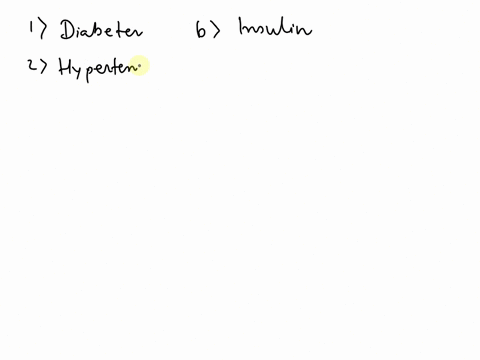 1) Diabetes b) Insulin
2) Hyperten